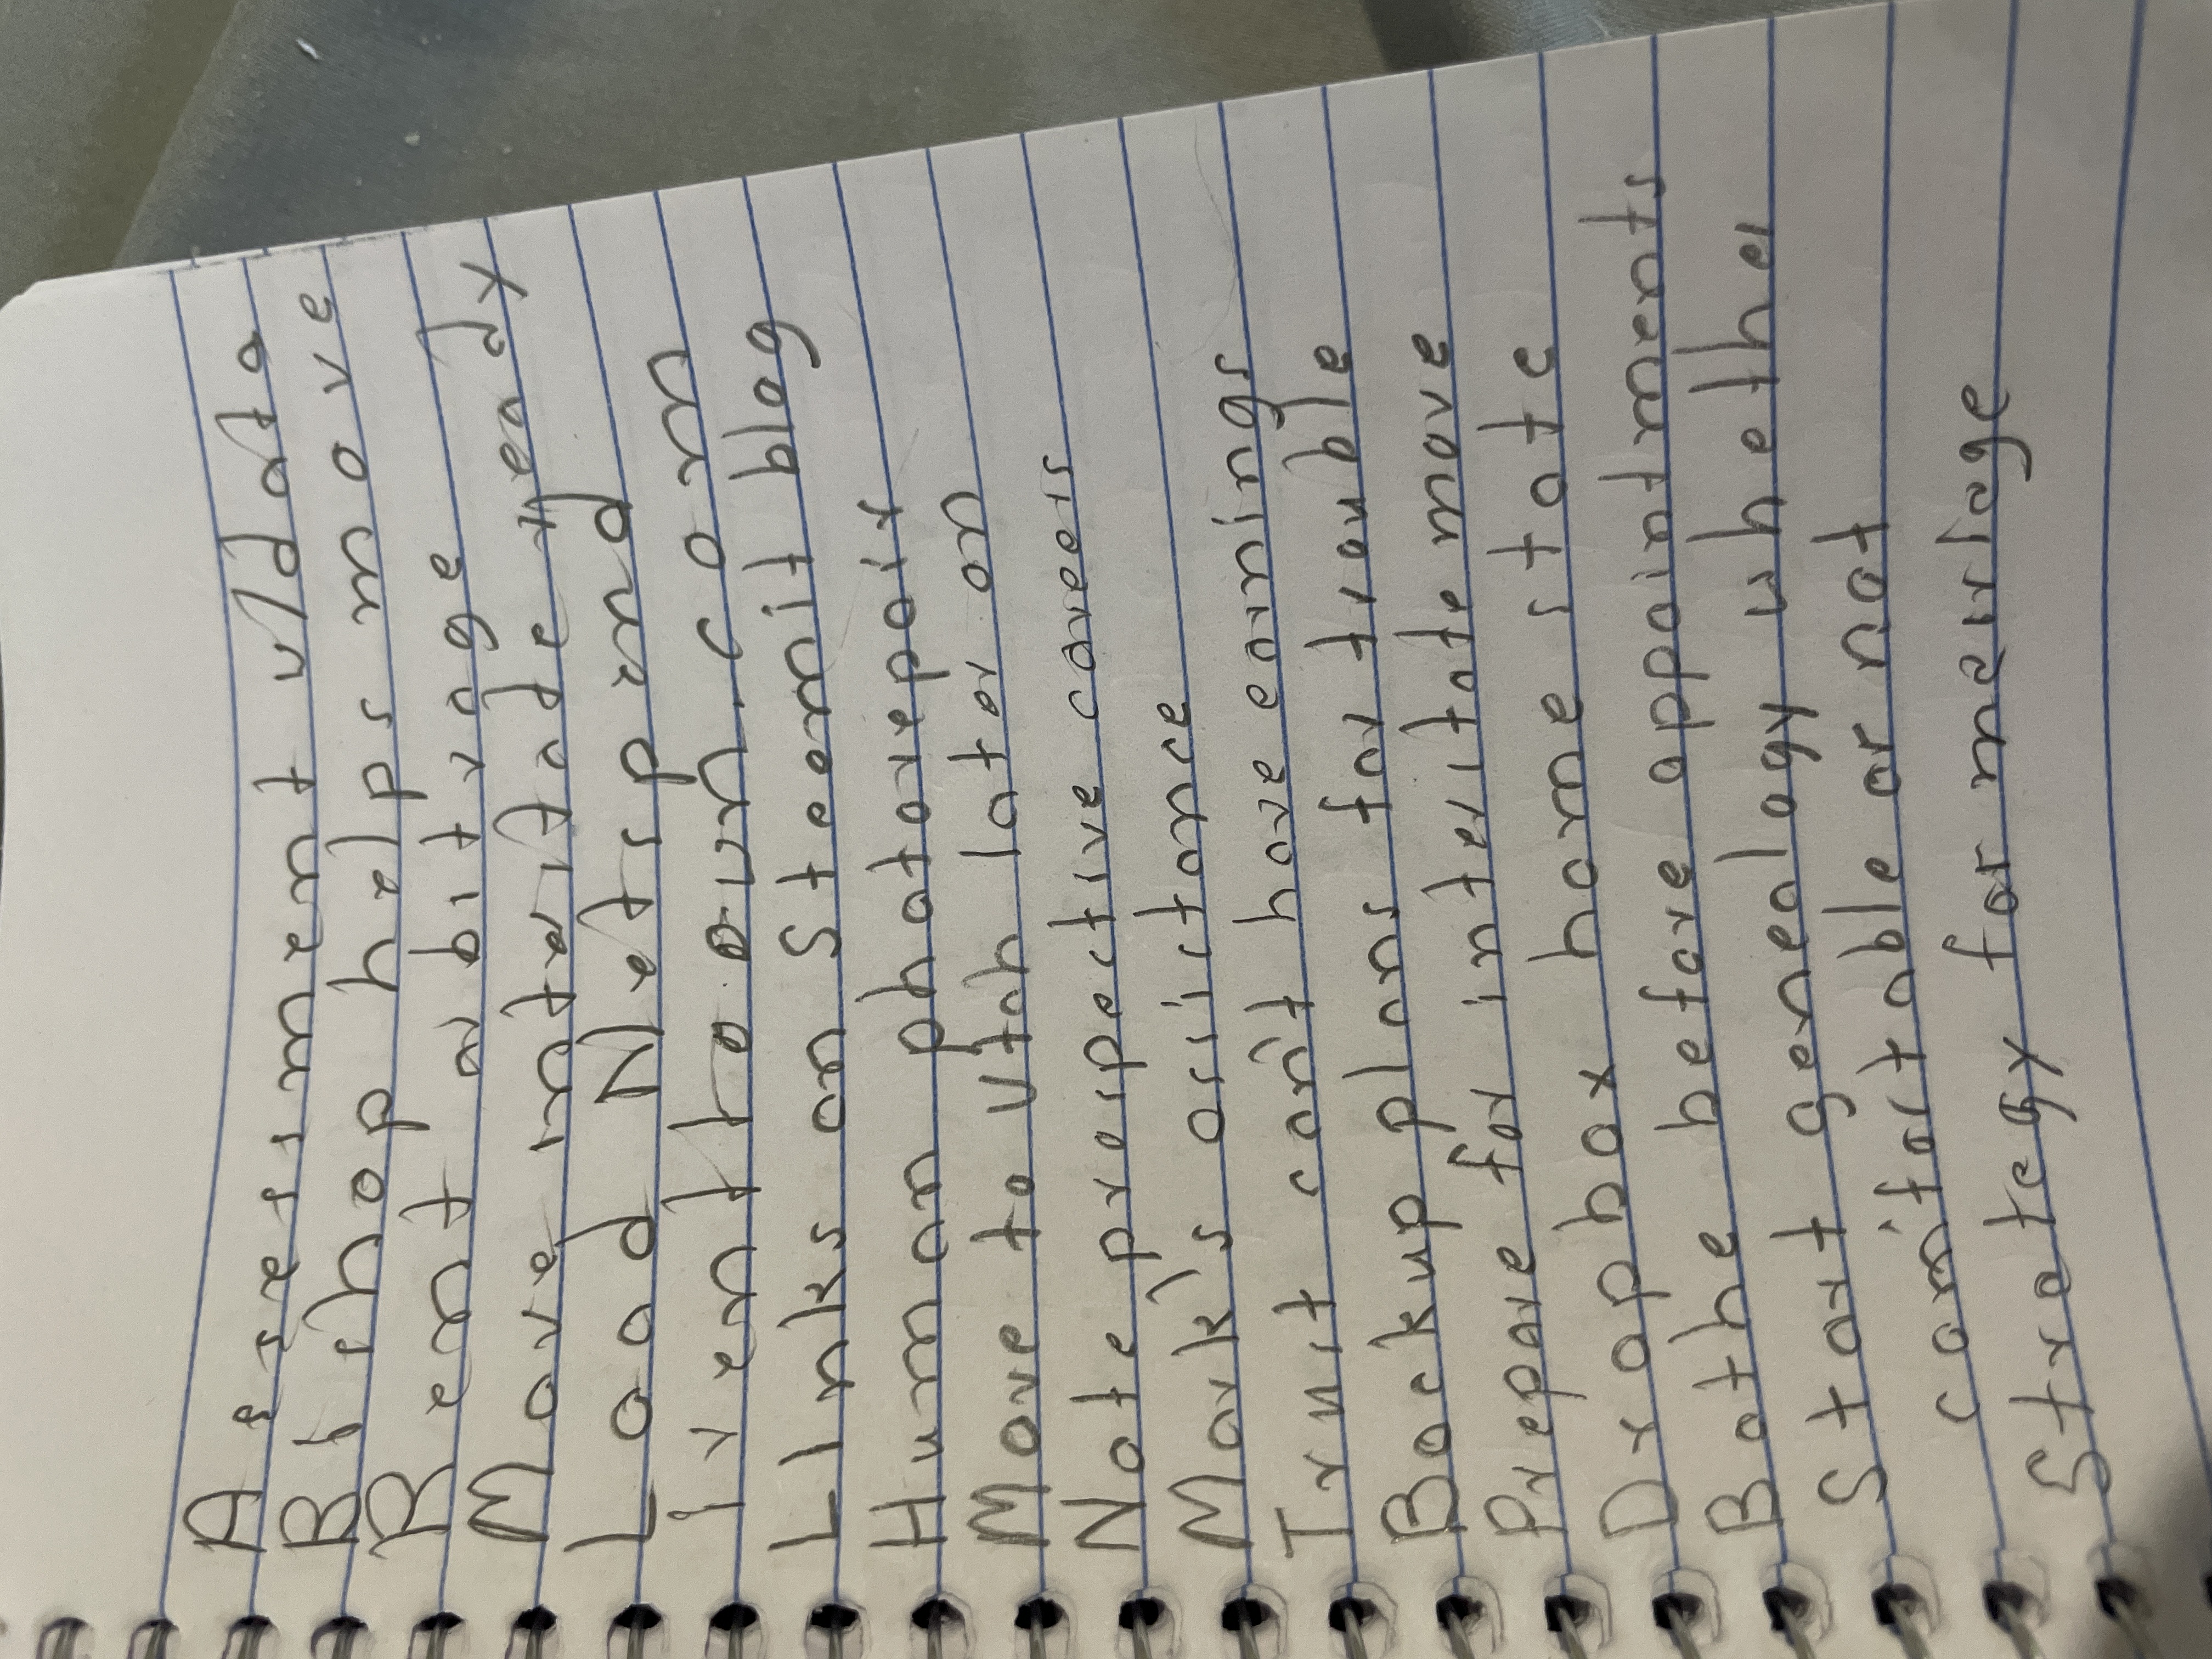 Assessment
Bishop helps more
Rent
More
Load NetSpend
Links on Steemit blog
Human photo repair
Move to Utah later on
Note prospective careers
Mark's assistance
Trust can't have earnings
Backup plans for trouble
Prepare for interstate move
Drop box home
Bathe before appointments
Start genealogy whether
comfortable or not
Strategy for marriage